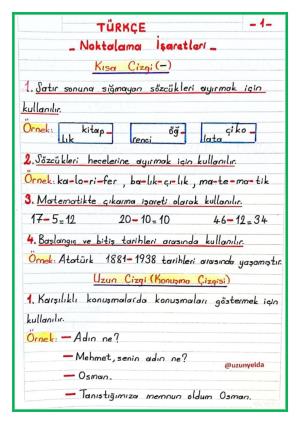 TÜRKÇE
-1-
- Noktalama İşaretleri -
Kısa Çizgi (-)
1. Satır sonuna sığmayan sözcükleri ayırmak için
kullanılır.
Örnek: kitap- öğ- çiko-
lık renci lata
2. Sözcükleri hecelerine ayırmak için kullanılır.
Örnek: ka-lo-ri-fer, ba-lık-çı-lık, ma-te-ma-tik
3. Matematikte çıkarma işareti olarak kullanılır.
17-5=12 20-10=10 46-12=34
4. Başlangıç ve bitiş tarihleri arasında kullanılır.
Örnek: Atatürk 1881-1938 tarihleri arasında yaşamıştır.
Uzun Çizgi (Konuşma Çizgisi)
1. Karşılıklı konuşmalarda konuşmaları göstermek için
kullanılır.
Örnek: — Adın ne?
— Mehmet, senin adın ne?
— Osman.
— Tanıştığımıza memnun oldum Osman.
@uzunyelda